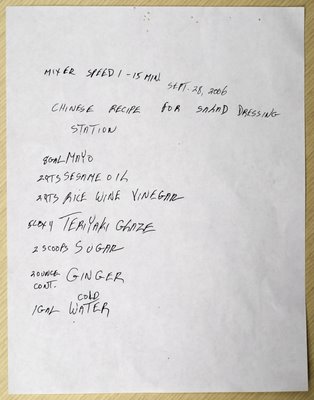 MIXER SPEED 1 - 15 MIN.
SEPT. 28, 2006
CHINESE RECIPE FOR SALAD DRESSING
STATION
8GAL MAYO
2QTS SESAME OIL
2QTS RICE WINE VINEGAR
5LBX4 TERIYAKI GLAZE
2 SCOOPS SUGAR
20UNCE GINGER
CONT.
COLD
1GAL WATER